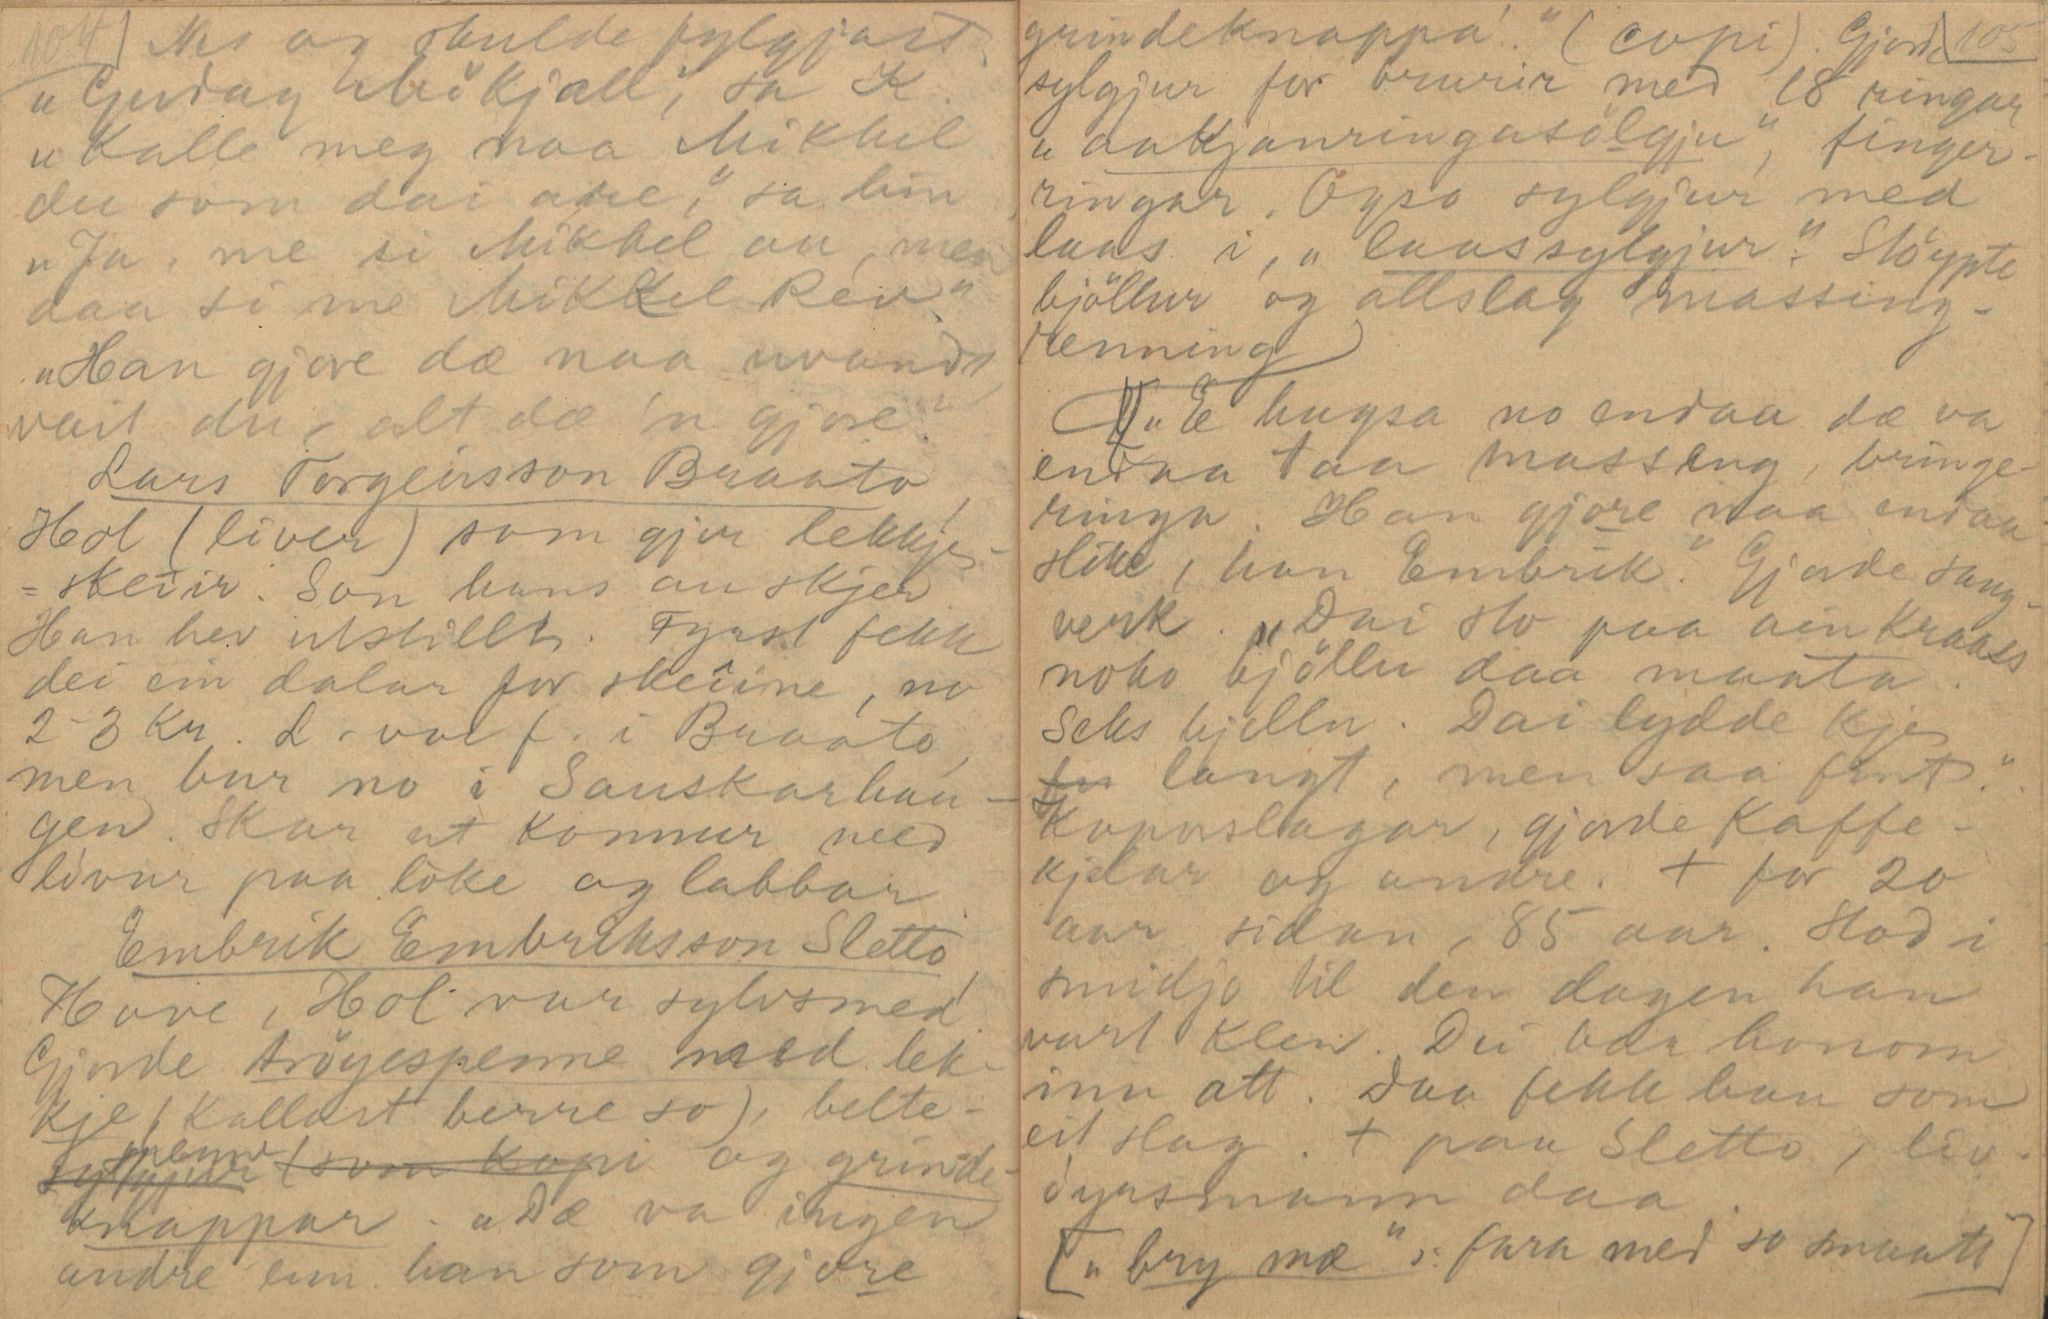 104] Nes og skulde fylgjast
„Godag Mikjæll", sa K.
„Kalle meg naa Mikkel
du som dai are," sa hin
„Ja, me si Mikkel au, men
daa si me Mikkel Rev."
„Han gjore dæ naa uvandt,
vait du, alt dæ 'n gjore."
Lars Torgeirsson Braato,
Hol (liver) som gjer lekkje-
=skeiir. Son hans au skjer
Han hev utstillt. Fyrst fekk
dei ein dalar for skeiine, no
2-3 Kr. L. var f. i Braato,
men bur no i Sauskarhau-
gen. Skar ut konnur med
livur paa loke og labbar
Embrik Embriksson Sletto,
Hove, Hol var sylvsmed.
Gjorde tröyespenne med lek-
kje (kallast berre so), belte-
spenne
sylgjur (som kopi og grinde-
knappar. „Dæ va ingen
andre enn han som gjore
grindeknappa'." (copi). Gjorde [105
sylgjur for brurir med 18 ringar
„aakjanringasölgju", finger-
ringar. Ogso sylgjur med
laas i, „laassylgjur". Stöypte
bjöllur og allslag massing-
renning
„E hugsa no endaa dæ va
endaa taa massing, bringe-
ringa. Han gjore naa endaa
slike, han Embrik." Gjorde sang-
verk. „Dai slo paa ain kraass
noko bjöllu daa maata.
Seks bjellu. Dai lydde kje
for langt, men saa fint."
Koparslagar, gjorde Kaffe-
kjelar og andre. + for 20
aar sidan, 85 aar. Stod i
smidjo til den dagen han
vart klen. Dei bar honom
inn att. Daa fekk han som
eit slag. + paa Sletto, liv-
öyrsmann daa.
[„bry mæ" : fara med so smaatt]